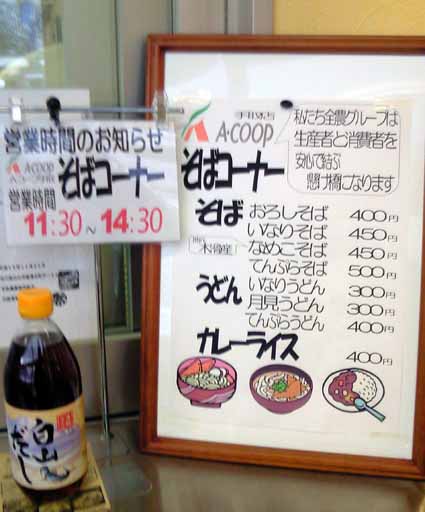 営業時間のお知らせ
A・COOP
そばコーナー
営業時間
11:30~14:30
A・COOP
私たち全農グループは
生産者と消費者を
安心で結ぶ
懸け橋になります
そばコーナー
そば
おろしそば 400円
いなりそば 450円
なめこそば 450円
てんぷらそば 500円
うどん
いなりうどん 300円
月見うどん 300円
てんぷらうどん 400円
カレーライス 400円
白山だし